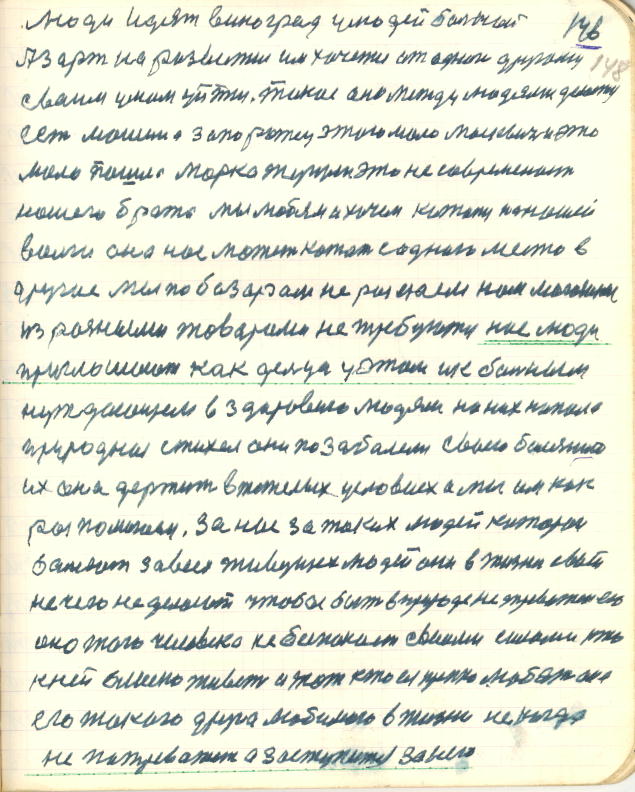 146
148
люди идят виноград у людей большой
Азарт на развитии им хочется от одной другому
своим умом уйти. Такое оно между людями
есть машина запорожец этого мало москвич и это
мало марка жигули это не современост
нашего брата мы любям и хочем котому по нашей
воли она нас может котат с одного место в
другие мы по базарам не ростаем нам магазины
из разными товарами не требуюти нас люди
приглошают как делца у этом их болным
нуждающем в здаровию людям на них напала
природная стихея они позаболели своею болязню
их она держит в тяжелых условиех а мы им как
роз помогаем. За нас за таких людей которои
болеют за всех живущих людей они в жизни своей
нечего не делают чтобы быть в природе не
оно того человека не беспокоит своими силами кто
к ней близко живет и тот кто ея любит она
его такого друга любимого в жизни некогда
не а заступится за него